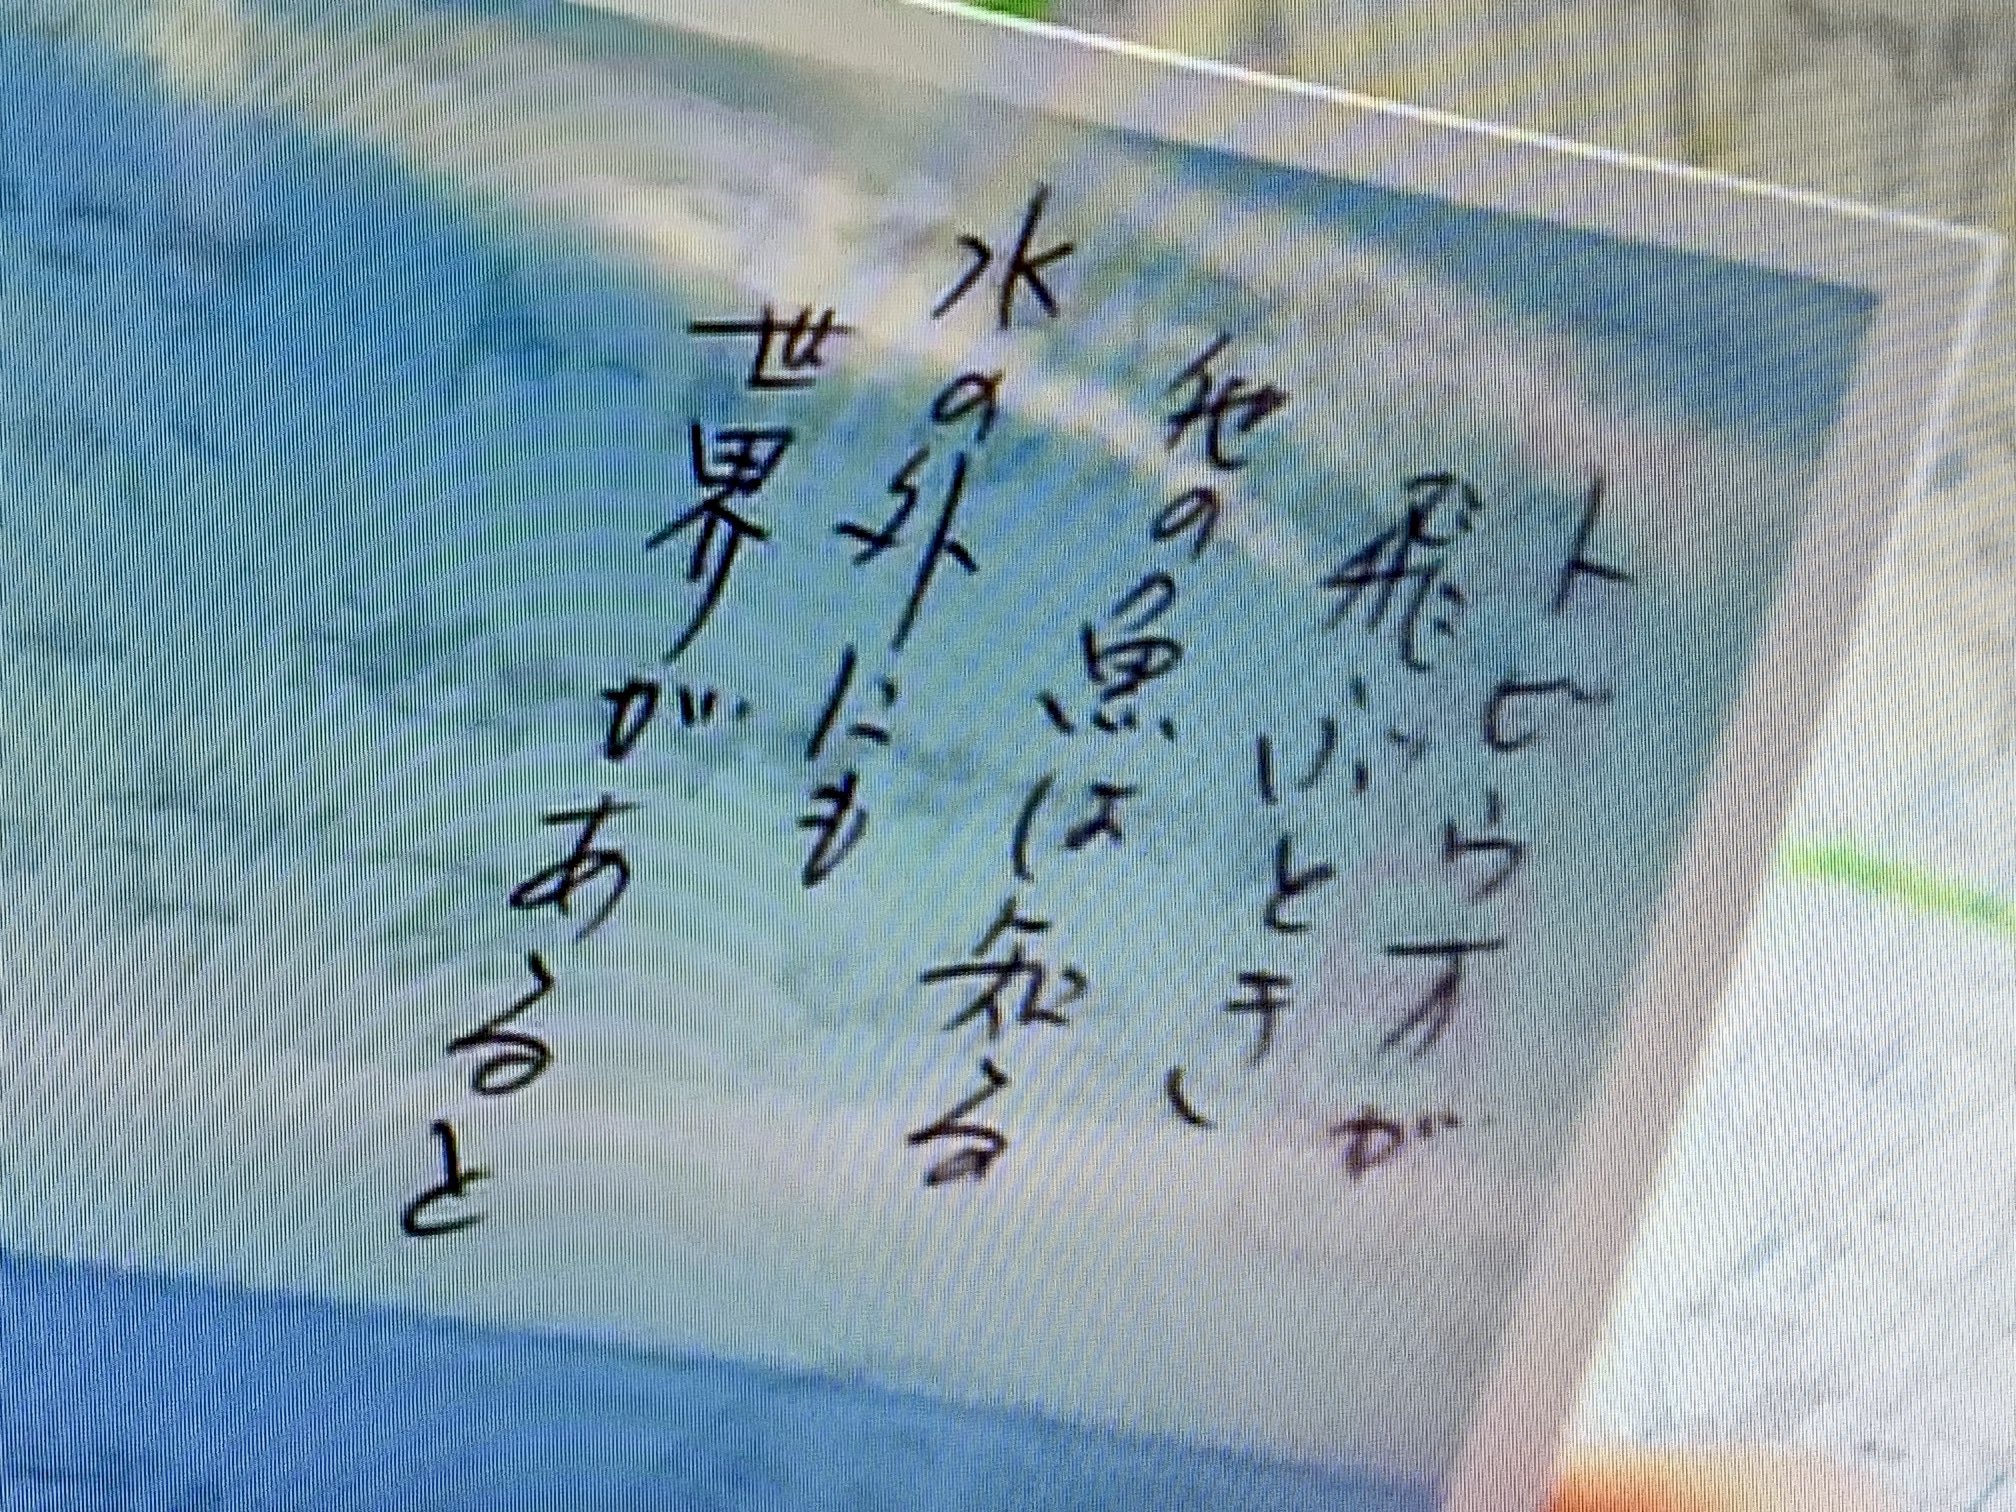 トビウオが
飛ぶとキ
他の魚は知る
水の外にも
世界があると